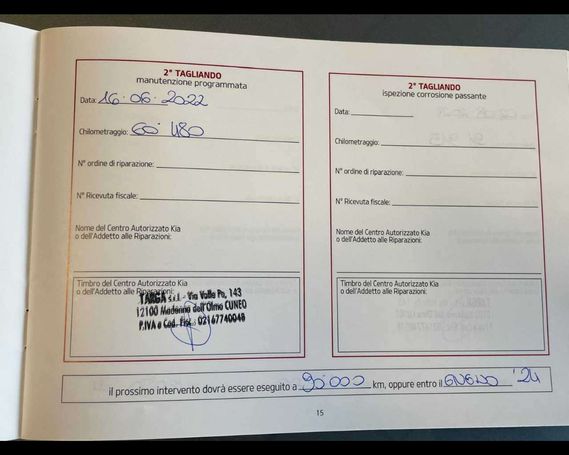 2° TAGLIANDO
manutenzione programmata
Data: 16-06-2022
Chilometraggio: 60 480
N° ordine di riparazione:
N° Ricevuta fiscale:
Nome del Centro Autorizzato Kia
o dell'Addetto alle Riparazioni:
Timbro del Centro Autorizzato Kia
o dell'Addetto alle Riparazioni:
TARGA s.r.l. - Via Valle Po, 143
12100 Madonna dell'Olmo CUNEO
P.IVA e Cod. Fisc. 02167740048
2° TAGLIANDO
ispezione corrosione passante
Data:
Chilometraggio:
N° ordine di riparazione:
N° Ricevuta fiscale:
Nome del Centro Autorizzato Kia
o dell'Addetto alle Riparazioni:
Timbro del Centro Autorizzato Kia
o dell'Addetto alle Riparazioni:
il prossimo intervento dovrà essere eseguito a 90 000 km, oppure entro il '24
15